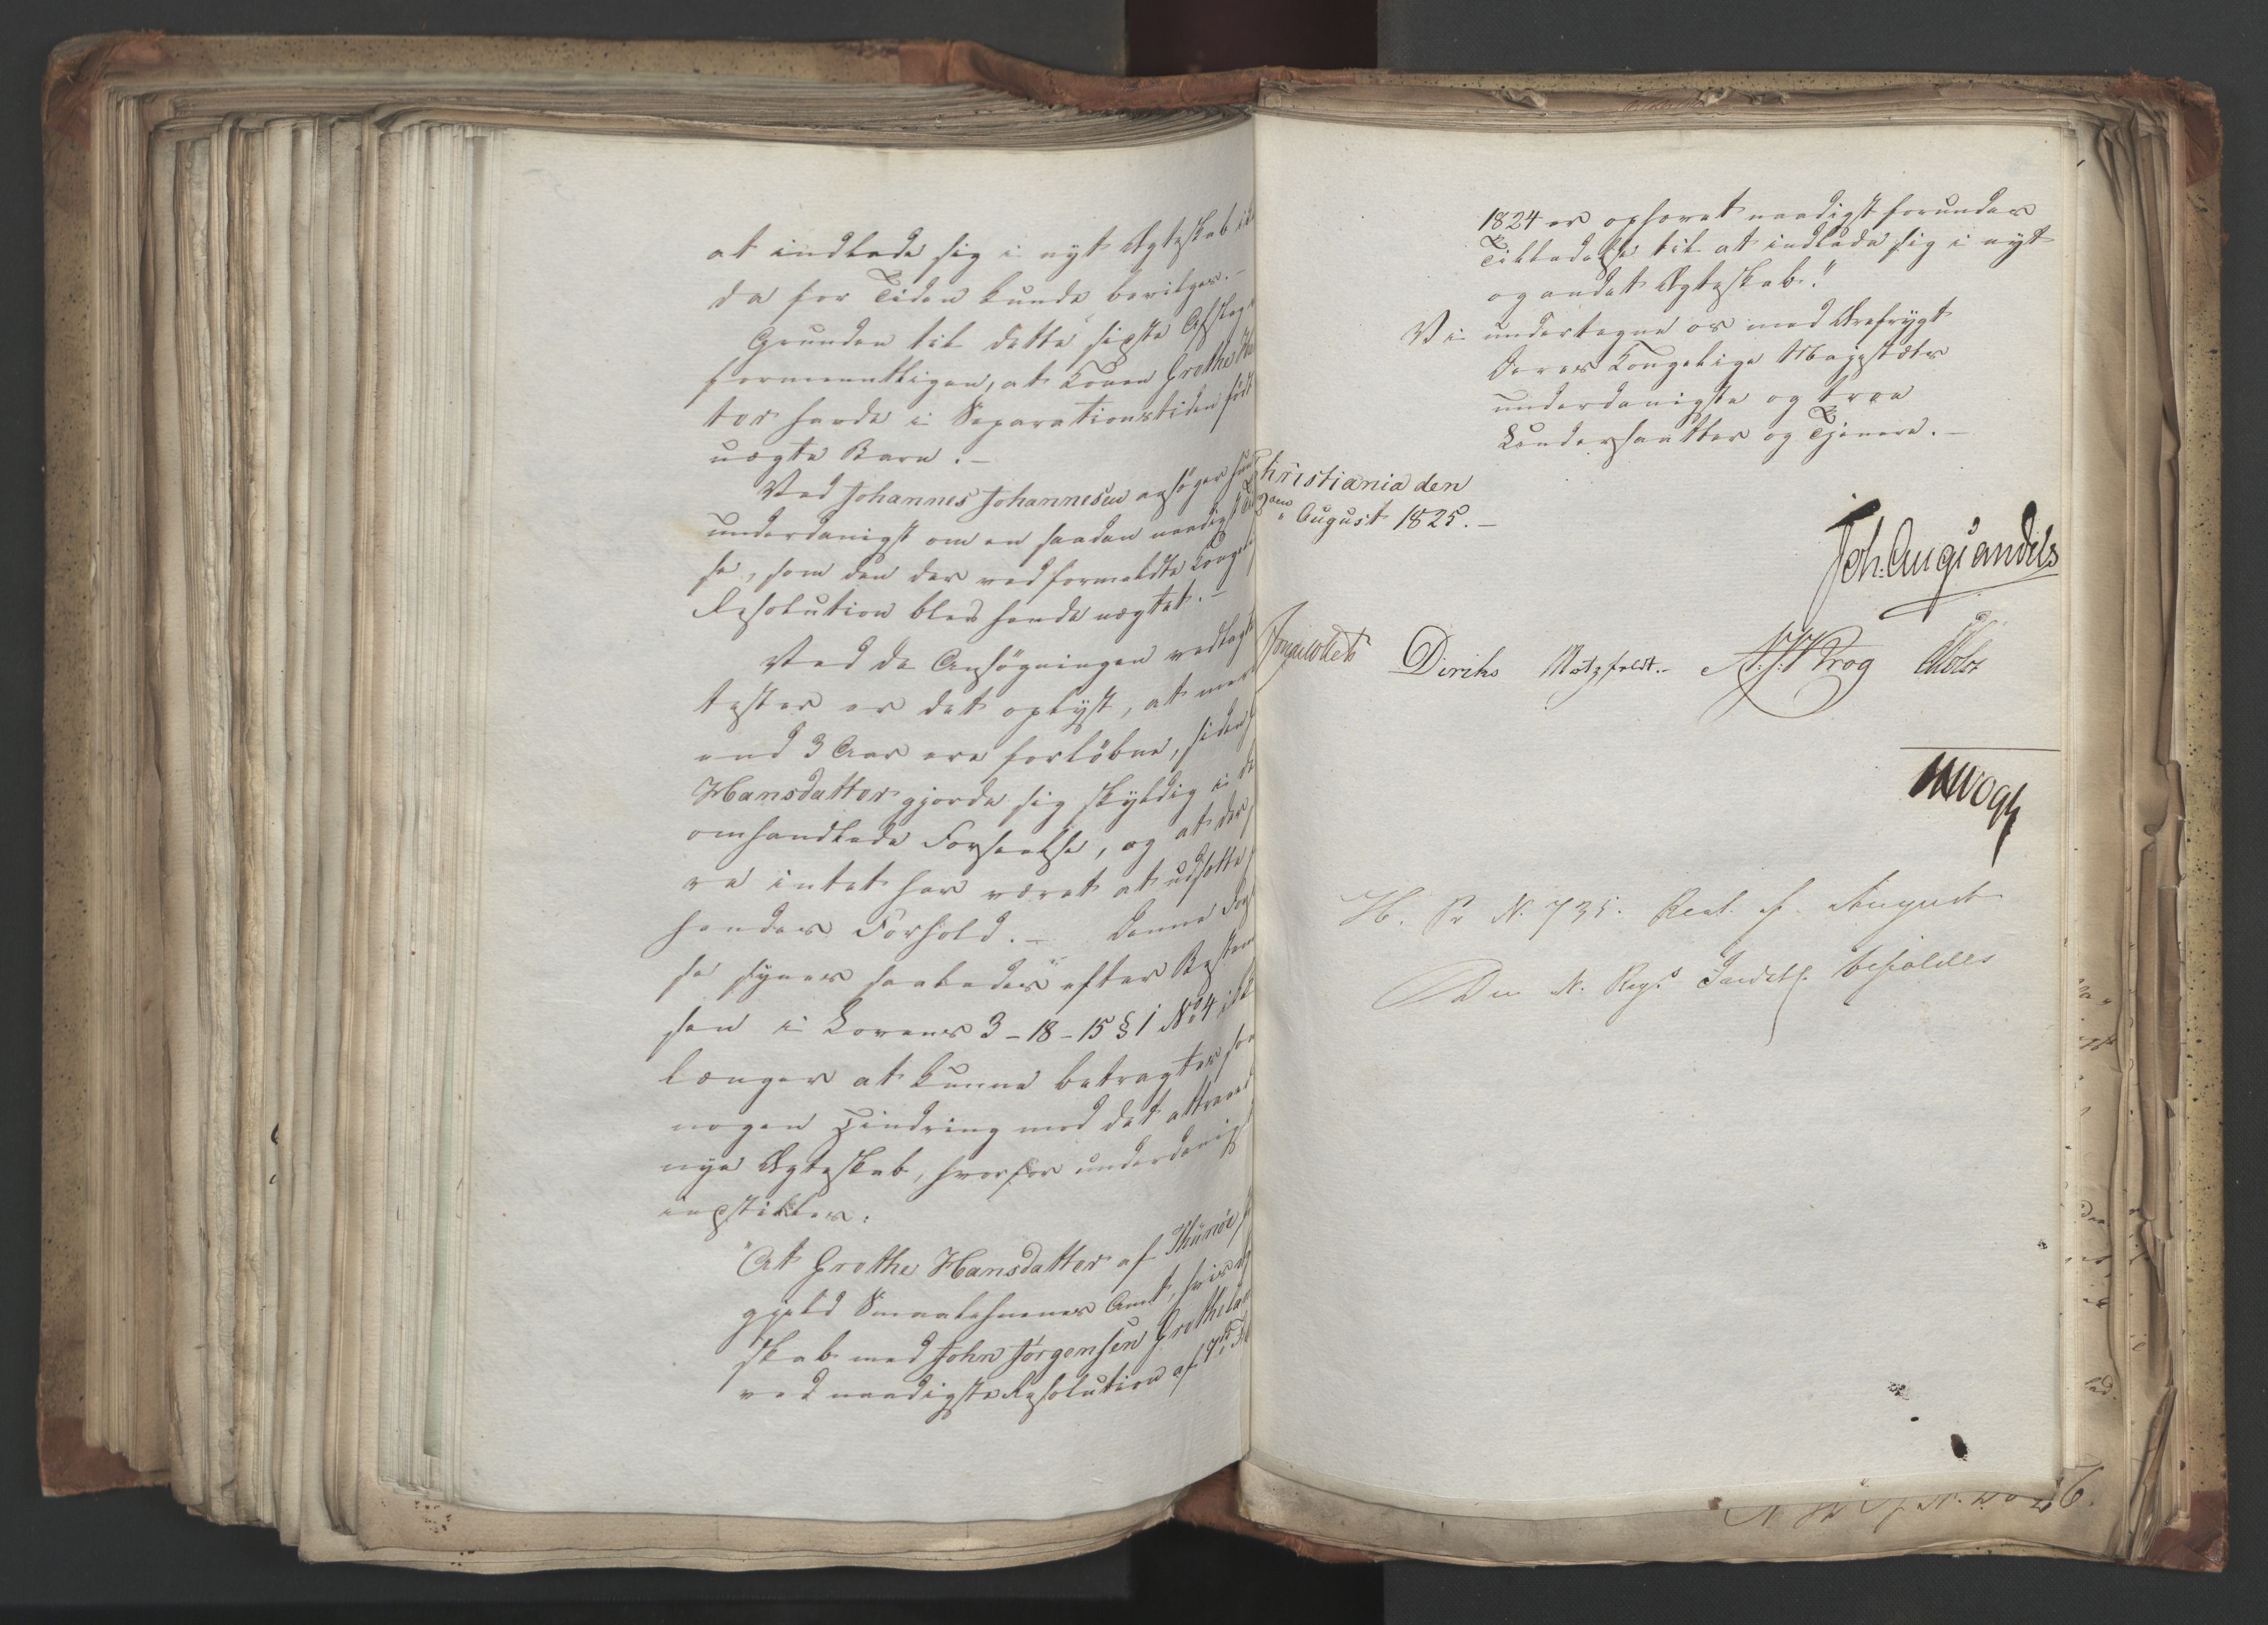 at indlade sig i nyt Ægteskab ik
da for Tiden kunde bevilges.-
Grunden til dette sidste Afslag
formeentligen, at Konen Grethe Ha
ter havde i Separationstiden født
uægte Barn.-
Ved Johannes Johannesen ansøger hun
underdanigst om en saadan naadigst
se, som den der ved formeldte Konge
Resolution blev hende nægtet.-
Ved de Ansøgningen vedlagte
tester er det oplyst, at mere
end 3 Aar ere forløbne, siden
Hansdatter gjorde sig skyldig i de
omhandlede Forseelse, og at der
re intet har været at udsætte
hendes Forhold.- Denne For
se synes saaledes efter Bestem
sen i Lovens 3-18-15 § 1 No 4 ikke
længer at kunne betragtes som
nogen Hindring mod det attraaed
nye Ægteskab, hvorfor underdanigst
indstilles:
"At Grethe Hansdatter af Thunøe
gjeld Smaalehnenes Amt, hvis
skab med John Jørgensen Grethelan
ved naadigste Resolution af 7de
1824 er ophævet naadigst forundes
Tilladelse til at indlade sig i nyt
og andet Ægteskab."
Vi undertegne os med Ærefrygt
Deres Kongelige Majestæts
underdanigste og troe
Undersaatter og Tjenere.-
Christiania den
2den August 1825.-
Joh. Aug. Sandels
Jonas Collett Diriks Motzfeldt.- A. J. Krog Holst
H. Pr N. 735. Resol. f. August
Den N. Reg. Indst. befoldes